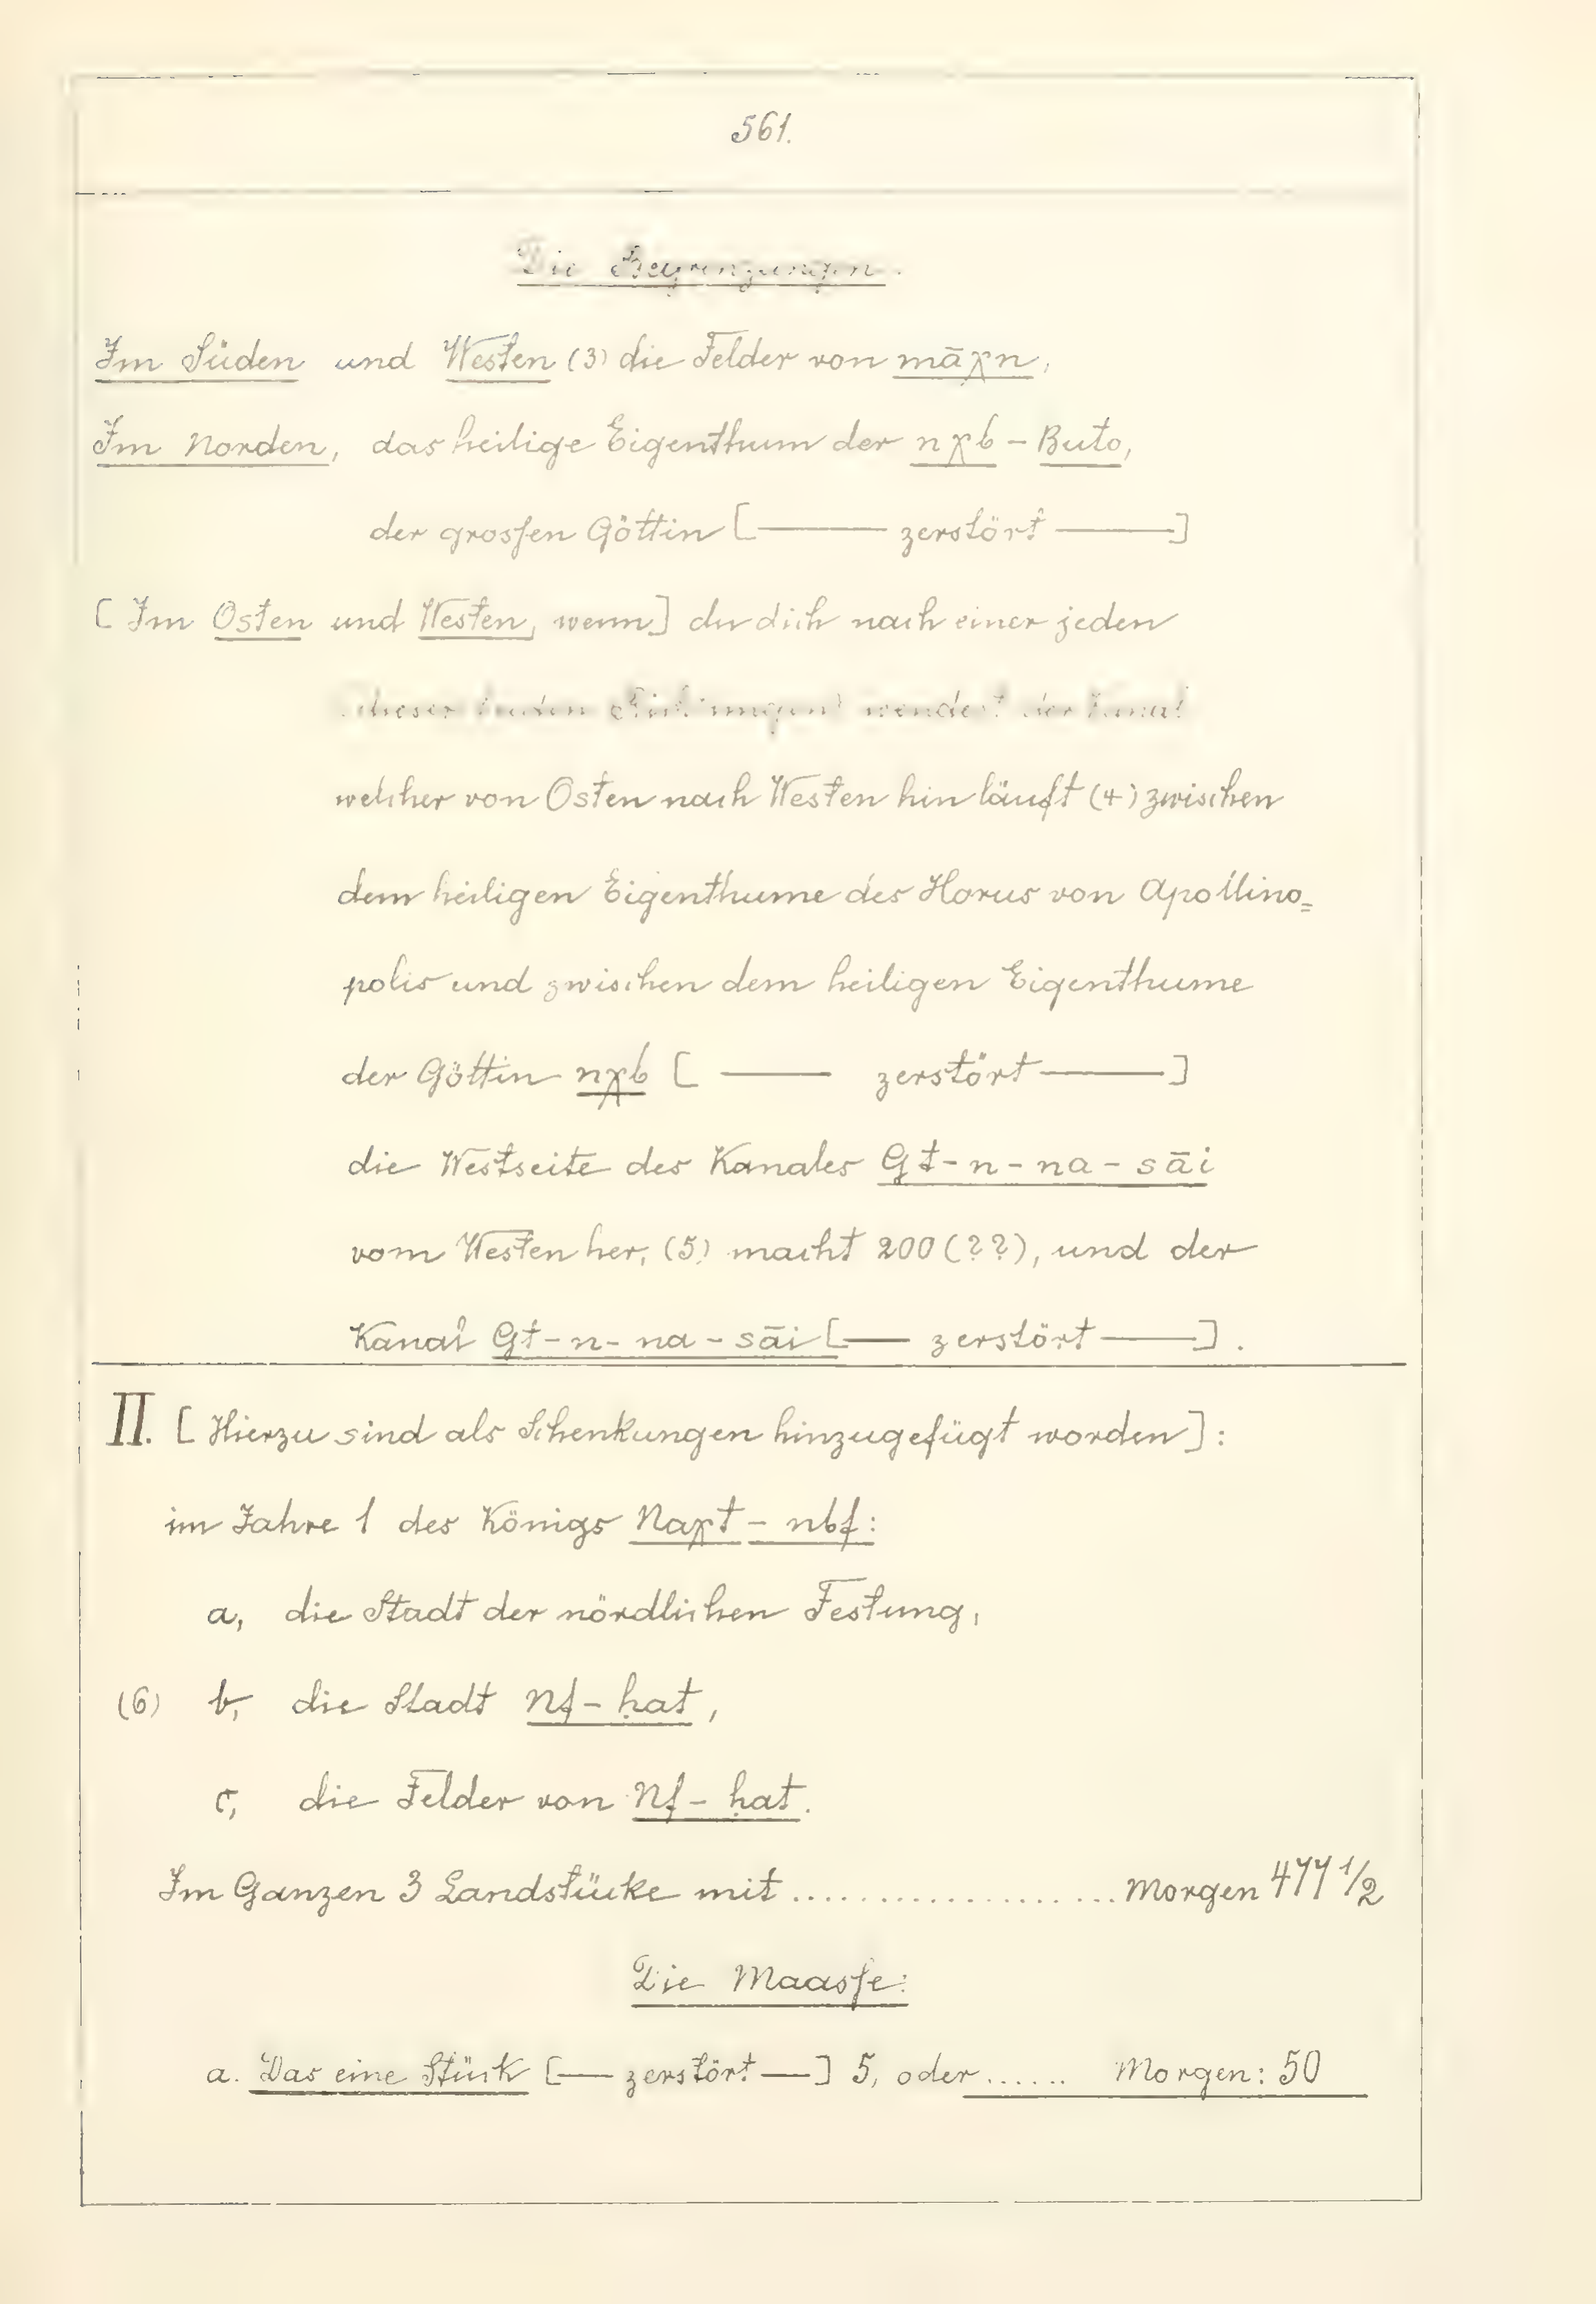 561.
Die Begrenzungen.
Im Süden und Westen (3) die Felder von māχn,
Im Norden, das heilige Eigenthum der nχb - Buto,
der grossen Göttin [—— zerstört ——]
[Im Osten und Westen, wenn] du dich nach einer jeden
dieser beiden Richtungen wendest der Kanal
welcher von Osten nach Westen hin läuft (4) zwischen
dem heiligen Eigenthume des Horus von Apollino=
polis und zwischen dem heiligen Eigenthume
der Göttin nχb [—— zerstört ——]
die Westseite des Kanales Gt-n-na-sāi
vom Westen her, (5) macht 200 (??), und der
Kanal Gt-n-na-sāi [—— zerstört ——].
II. [Hierzu sind als Schenkungen hinzugefügt worden]:
im Jahre 1 des Königs Naχt - nbf:
a, die Stadt der nördlichen Festung,
(6) b, die Stadt Nf-ḥat,
c, die Felder von Nf-ḥat.
Im Ganzen 3 Landstücke mit .................... Morgen 477 1/2
Die Maasse:
a. Das eine Stück [— zerstört —] 5, oder ...... Morgen: 50